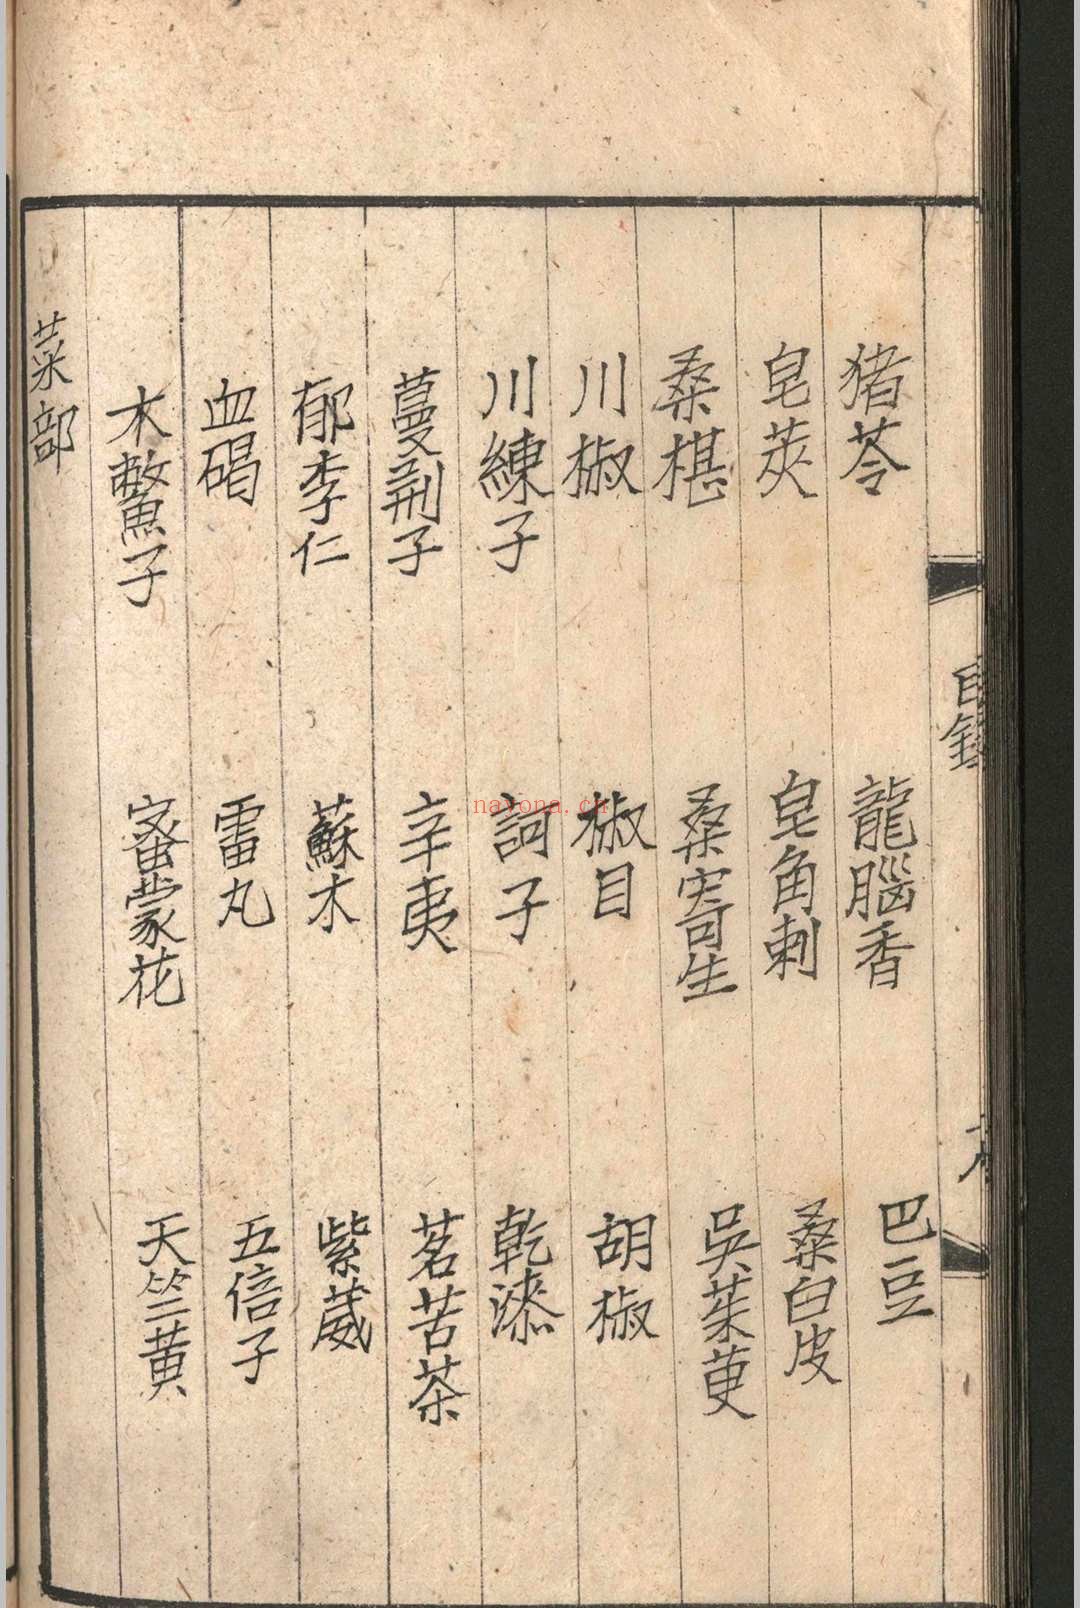 目錄
猪苓 龍腦香 巴豆
皂莢 皂角刺 桑白皮
桑椹 桑寄生 吳茱萸
川椒 椒目 胡椒
川練子 訶子 乾漆
蔓荆子 辛夷 茗苦茶
郁李仁 蘇木 紫葳
血碣 雷丸 五倍子
木鱉子 密蒙花 天竺黄
菜部
nayona.cn